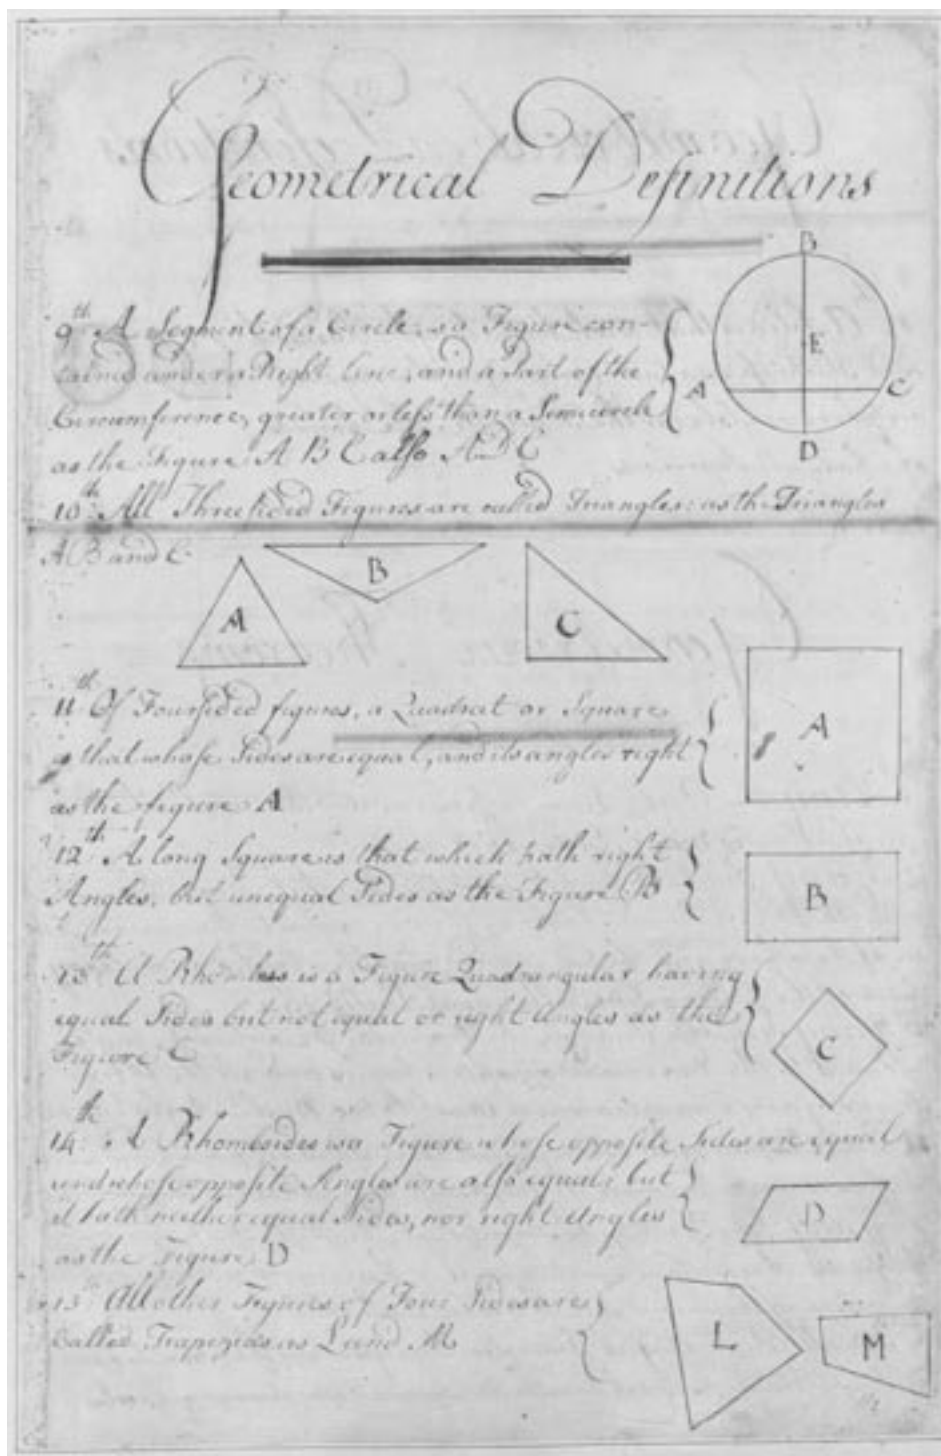 Geometrical Definitions
9th A Segment of a Circle, is a Figure con-
tained under a Right line, and a Part of the
Circumference, greater or less than a Semicircle
as the Figure A B C also A D C
B
E
A
C
D
10th All Three sided Figures are called Triangles: as the Triangles
A B and C
A
B
C
11th Of Four sided figures, a Quadrat or Square
is that whose Sides are equal, and its angles right
as the figure A
A
12th A long Square is that which hath right
Angles, but unequal Sides as the Figure B
B
13th A Rhombus is a Figure Quadrangular having
equal Sides but not equal or right Angles as the
Figure C
C
14th A Rhomboides is a Figure whose opposite Sides are equal
and whose opposite Angles are also equal; but
it hath neither equal Sides, nor right Angles
as the Figure D
D
15 All other Figures of Four Sides are
Called Trapezias as L and M
L
M